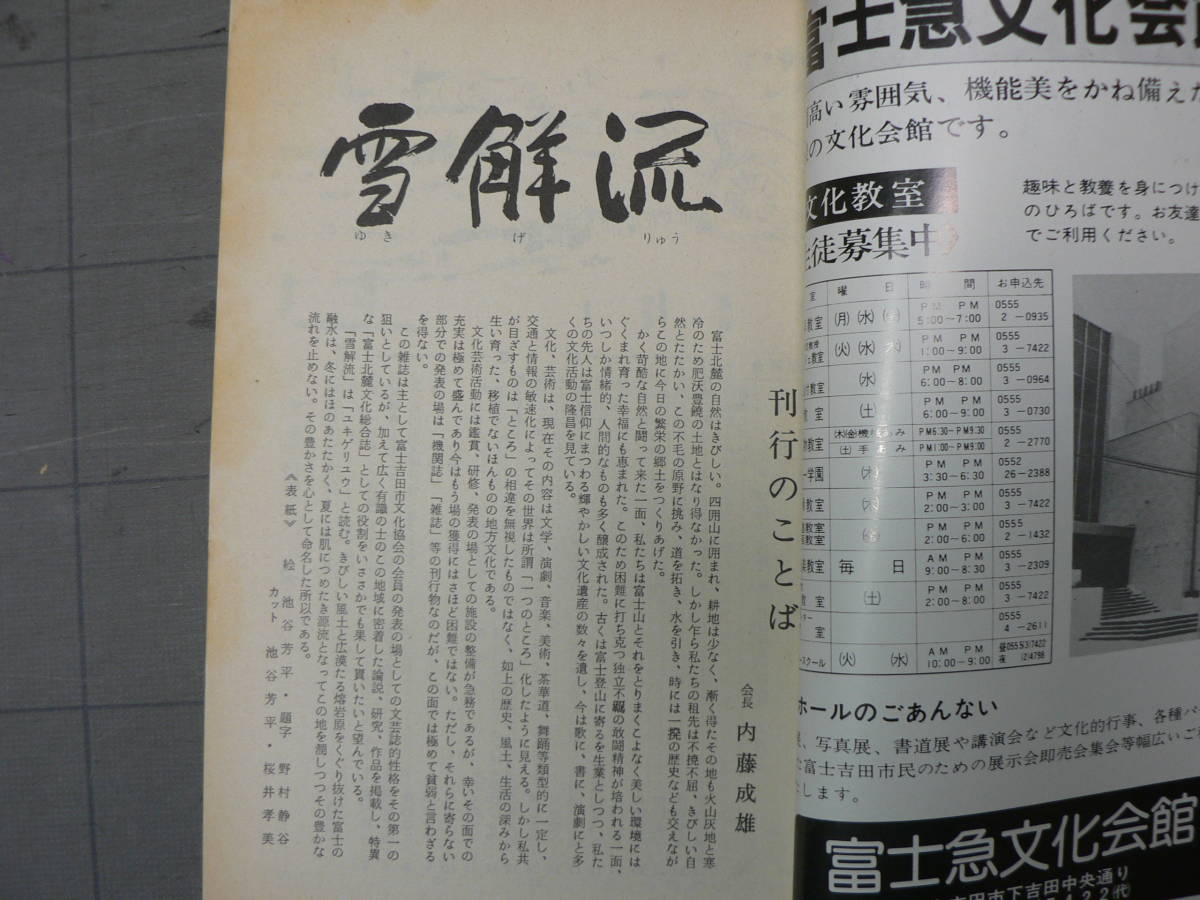 雪解流
ゆき げ りゅう
刊行のことば
会長 内藤成雄
富士北麓の自然はきびしい。四囲山に囲まれ、耕地は少なく、漸く得たその地も火山灰地と寒
冷のため肥沃豊饒の土地とはなり得なかった。しかし乍ら私たちの祖先は不撓不屈、きびしい自
然とたたかい、この不毛の原野に挑み、道を拓き、水を引き、時には一揆の歴史なども交えなが
らこの地に今日の繁栄の郷土をつくりあげた。
かく苛酷な自然と闘って来た一面、私たちは富士山とそれをとりまくこよなく美しい環境には
ぐくまれ育った幸福にも恵まれた。このため困難に打ち克つ独立不羈の敢闘精神が培われる一面、
いつしか情緒的、人間的なものも多く醸成された。古くは富士登山に寄るを生業としつつ、私た
ちの先人は富士信仰にまつわる輝やかしい文化遺産の数々を遺し、今は歌に、書に、演劇にと多
くの文化活動の隆昌を見ている。
文化、芸術は、現在その内容は文学、演劇、音楽、美術、茶華道、舞踊等類型的に一定し、
交通と情報の敏速化によってその世界は所謂「一つのところ」化したように見える。しかし私共
が目ざすものは「ところ」の相違を無視したものではなく、如上の歴史、風土、生活の深みから
生い育った、移植でないほんものの地方文化である。
文化芸術活動には鑑賞、研修、発表の場としての施設の整備が急務であるが、幸いその面での
充実は極めて盛んであり今はもう場の獲得にはさほど困難ではない。ただし、それらに寄らない
部分での発表の場は「機関誌」「雑誌」等の刊行物なのだが、この面では極めて貧弱と言わざる
を得ない。
この雑誌は主として富士吉田市文化協会の会員の発表の場としての文芸誌的性格をその第一の
狙いとしているが、加えて広く有識の士のこの地域に密着した論説、研究、作品を掲載し、特異
な「富士北麓文化総合誌」としての役割をいささかでも果して貰いたいと望んでいる。
「雪解流」は「ユキゲリユウ」と読む。きびしい風土と広漠たる熔岩原をくぐり抜けた富士の
融水は、冬にはほのあたたかく、夏には肌につめたき源流となってこの地を潤しつつその豊かな
流れを止めない。その豊かさを心として命名した所以である。
《表紙》 絵 池谷芳平・題字 野村静谷
カット 池谷芳平・桜井孝美
富士急文化会館
高い雰囲気、機能美をかね備えた
の文化会館です。
文化教室
生徒募集中
趣味と教養を身につけ
のひろばです。お友達
でご利用ください。
室 曜 日 時 間 お申込先
教室 (月)(水)(金) PM 5:00〜PM 7:00 0555 2-0935
教室 (火)(水) PM 1:00〜PM 9:00 0555 3-7422
教室 (水) PM 6:00〜PM 8:00 0555 3-0964
教室 (土) PM 6:00〜PM 9:00 0555 3-0730
教室 (木)(金)機 あみ PM6:30〜PM9:30 0555
(土)手 あみ PM1:00〜PM9:00 2-2770
学園 (木) PM 3:30〜PM 6:30 0552 26-2388
教室 (火) PM 2:00〜PM 3:00 0555 3-7422
教室 (金) PM 2:00〜PM 6:00 0555 2-1432
教室 毎 日 AM 9:00〜PM 8:30 0555 3-2309
教室 (土) PM 2:00〜PM 8:00 0555 3-7422
室 0555 4-2611
スクール (火) (水) AM 10:00〜PM 9:00 昼0555(3)7422
夜 (2)4798
ホールのごあんない
展、写真展、書道展や講演会など文化的行事、各種パ
富士吉田市民のための展示会即売会集会等幅広いご
します。
富士急文化会館
吉田市下吉田中央通り
7422(代)